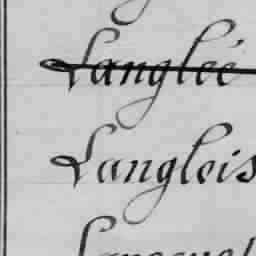 Langlée
Langlois